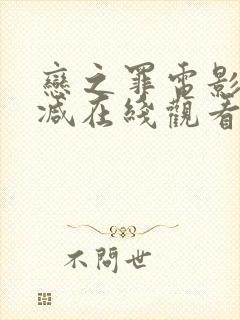 戀之罪電影
減在綫觀看
不問世